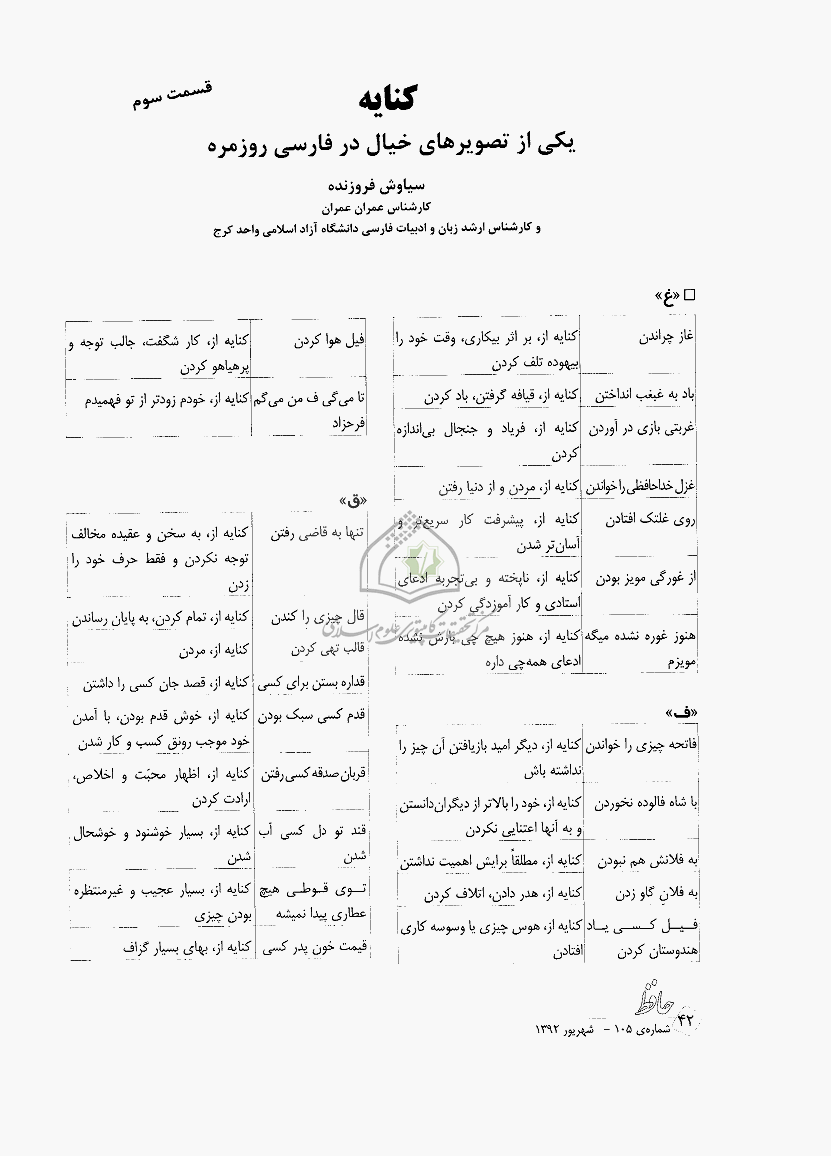 قسمت سوم
کنایه
یکی از تصویرهای خیال در فارسی روزمره
سیاوش فروزنده
کارشناس عمران عمران
و کارشناس ارشد زبان و ادبیات فارسی دانشگاه آزاد اسلامی واحد کرج
□ «غ»
غاز چراندن کنایه از، بر اثر بیکاری، وقت خود را
بیهوده تلف کردن
باد به غبغب انداختن کنایه از، قیافه گرفتن، باد کردن
غربتی بازی در آوردن کنایه از، فریاد و جنجال بی‌اندازه
کردن
غزل خداحافظی را خواندن کنایه از، مردن و از دنیا رفتن
روی غلتک افتادن کنایه از، پیشرفت کار سریع‌تر و
آسان‌تر شدن
از غورگی مویز بودن کنایه از، ناپخته و بی‌تجربه ادعای
استادی و کار آموزدگی کردن
هنوز غوره نشده میگه کنایه از، هنوز هیچ چی بارش نشده
مویزم ادعای همه‌چی داره
«ف»
فاتحه چیزی را خواندن کنایه از، دیگر امید بازیافتن آن چیز را
نداشته باش
با شاه فالوده نخوردن کنایه از، خود را بالاتر از دیگران‌دانستن
و به آنها اعتنایی نکردن
به فلانش هم نبودن کنایه از، مطلقاً برایش اهمیت نداشتن
به فلانِ گاو زدن کنایه از، هدر دادن، اتلاف کردن
فیل کسی یاد کنایه از، هوس چیزی یا وسوسه کاری
هندوستان کردن افتادن
فیل هوا کردن کنایه از، کار شگفت، جالب توجه و
پرهیاهو کردن
تا می‌گی ف من می‌گم کنایه از، خودم زودتر از تو فهمیدم
فرحزاد
«ق»
تنها به قاضی رفتن کنایه از، به سخن و عقیده مخالف
توجه نکردن و فقط حرف خود را
زدن
قال چیزی را کندن کنایه از، تمام کردن، به پایان رساندن
قالب تهی کردن کنایه از، مردن
قداره بستن برای کسی کنایه از، قصد جان کسی را داشتن
قدم کسی سبک بودن کنایه از، خوش قدم بودن، با آمدن
خود موجب رونق کسب و کار شدن
قربان صدقه کسی رفتن کنایه از، اظهار محبّت و اخلاص،
ارادت کردن
قند تو دل کسی آب کنایه از، بسیار خوشنود و خوشحال
شدن شدن
توی قوطی هیچ کنایه از، بسیار عجیب و غیرمنتظره
عطاری پیدا نمیشه بودن چیزی
قیمت خون پدر کسی کنایه از، بهای بسیار گزاف
حافظ
۴۲ شماره‌ی ۱۰۵ - شهریور ۱۳۹۲
مرکز تحقیقات کامپیوتری علوم اسلامی